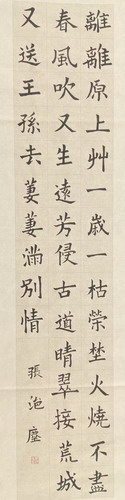 離離原上艸一歲一枯榮埜火燒不盡
春風吹又生遠芳侵古道晴翠接荒城
又送王孫去萋萋滿別情
張池塵